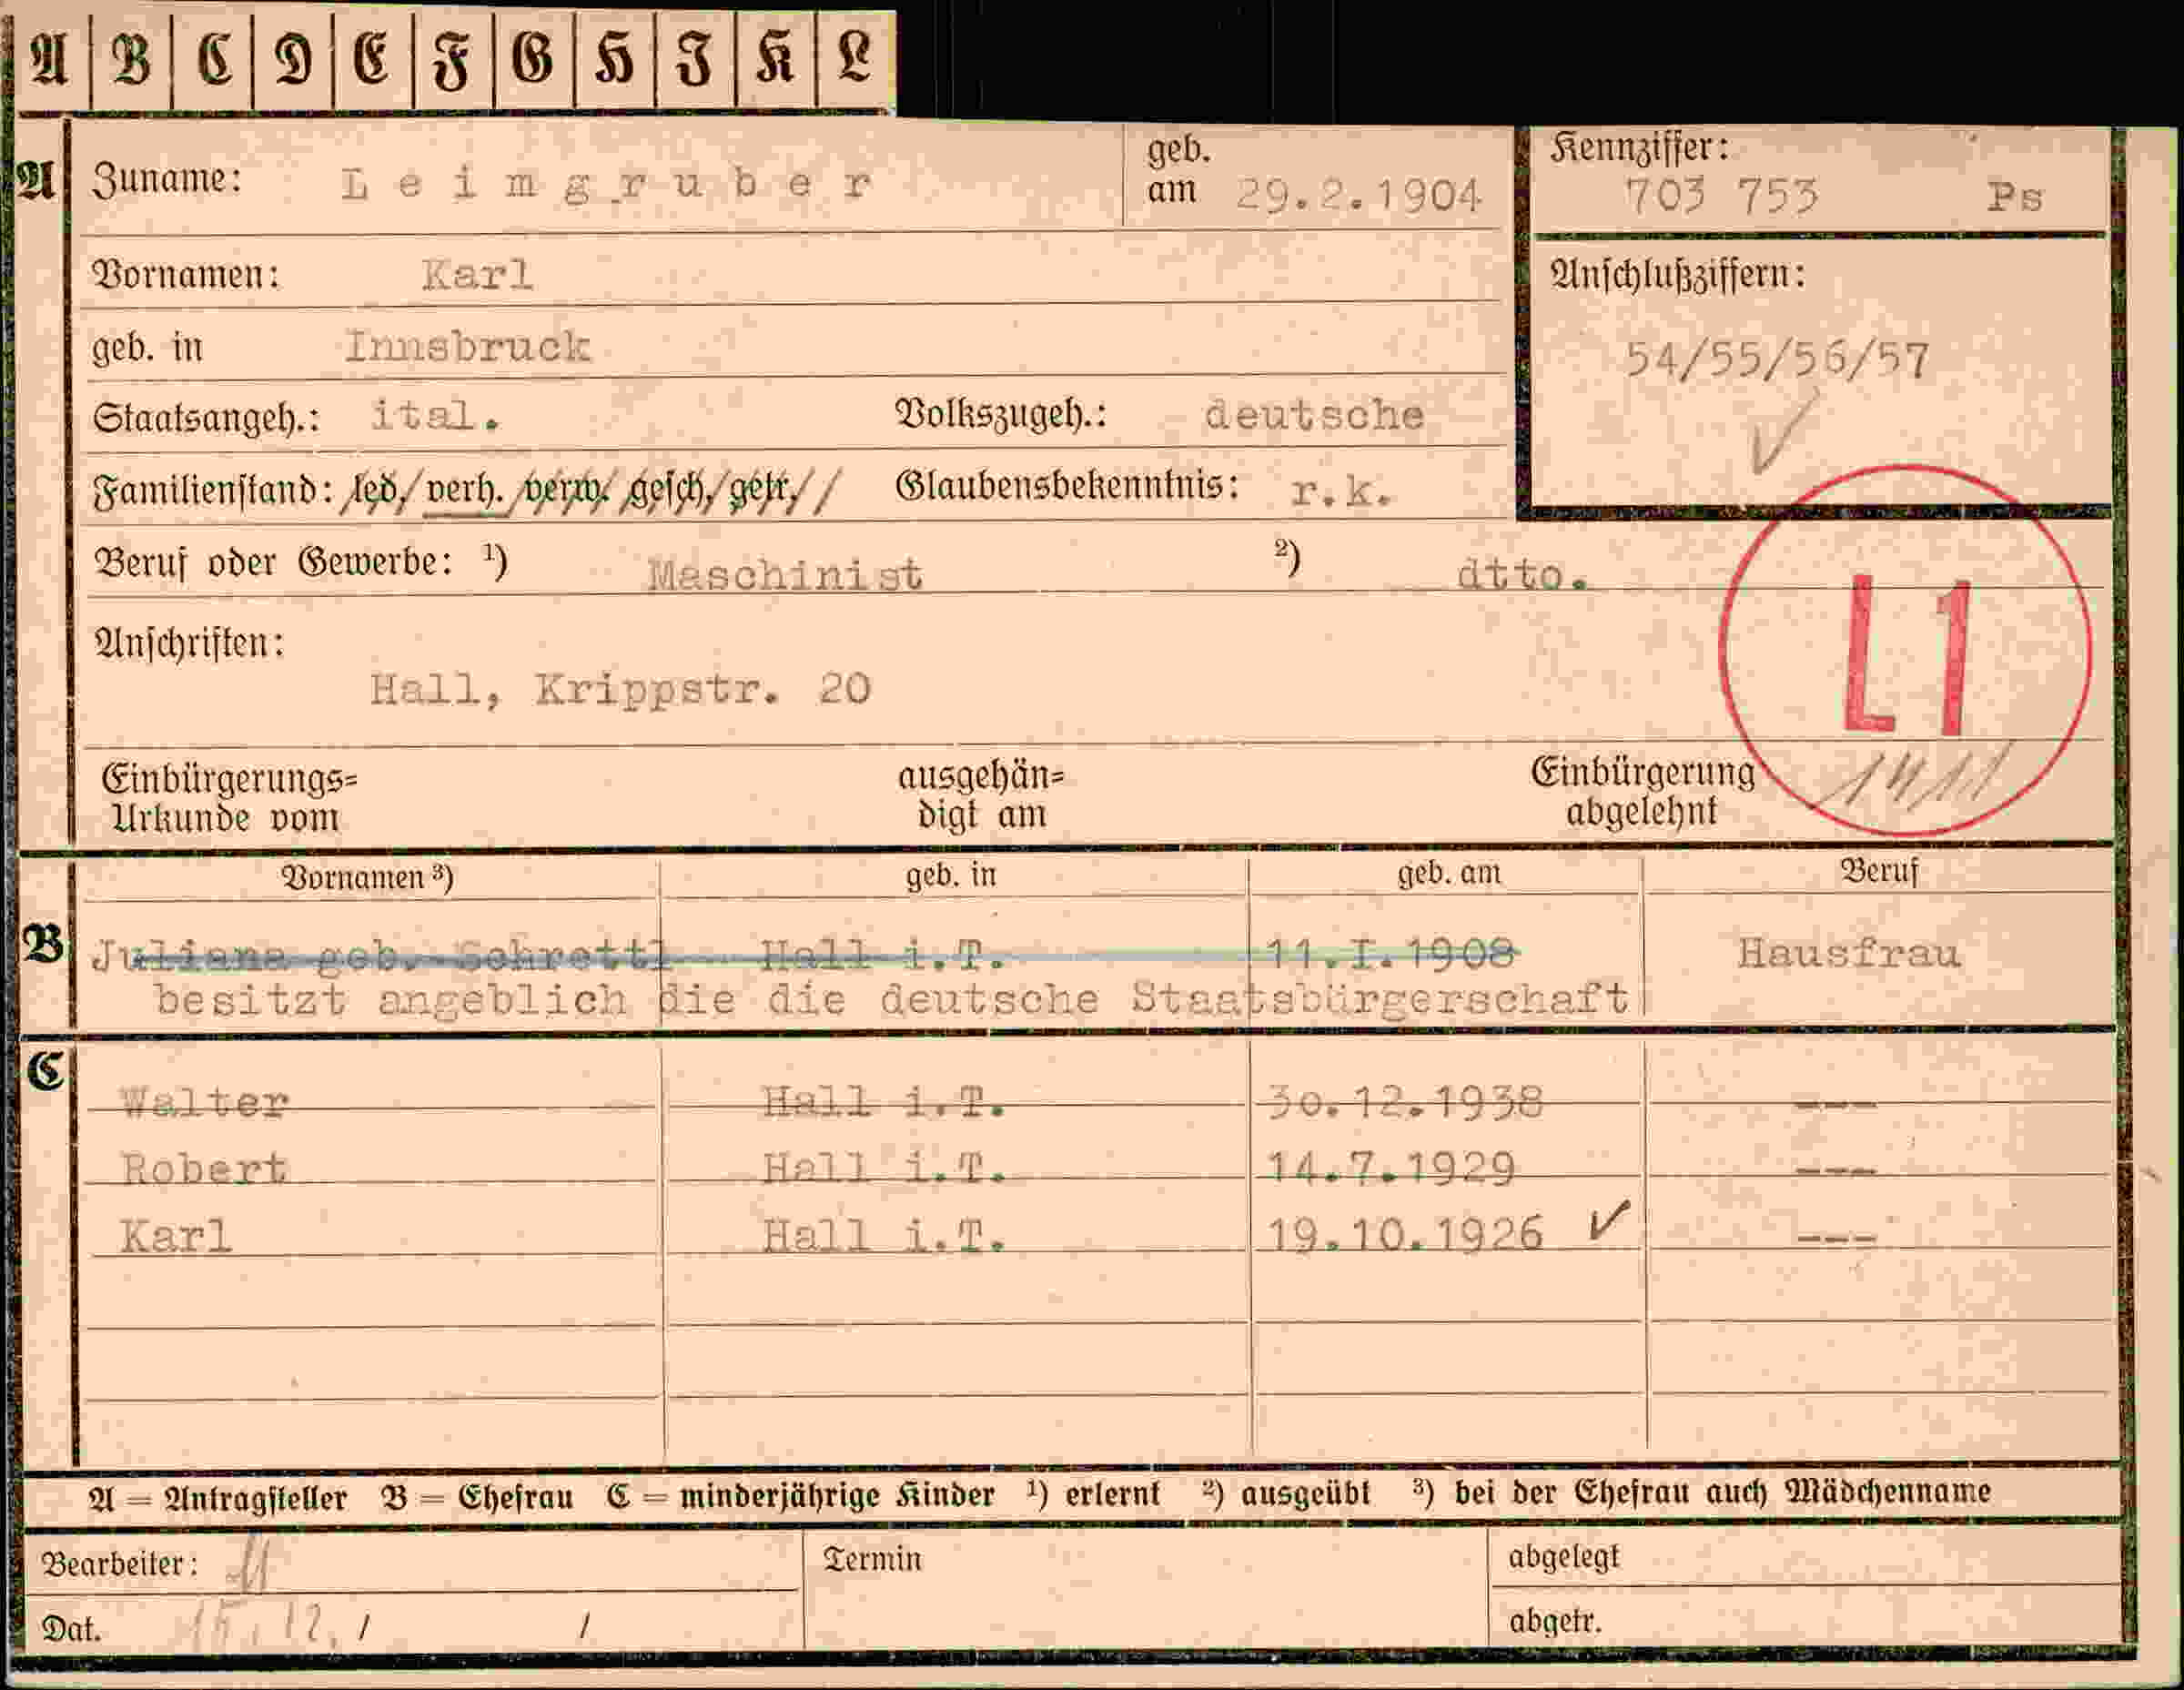 A B C D E F G H I K L
A Zuname: Leimgruber geb. am 29.2.1904 Kennziffer: 703 753 Ps
Vornamen: Karl
Anschlußziffern:
geb. in Innsbruck
54/55/56/57
Staatsangeh.: ital. Volkszugeh.: deutsche
Familienstand: led./verh./verw./gesch./getr.// Glaubensbekenntnis: r.k.
Beruf oder Gewerbe: ¹) Maschinist ²) dtto.
L1
Anschriften:
Hall, Krippstr. 20
Einbürgerungs= ausgehän= Einbürgerung
Urkunde vom digt am abgelehnt
Vornamen ³) geb. in geb. am Beruf
B Juliana geb. Schrettl Hall i.T. 11.I.1908 Hausfrau
besitzt angeblich die die deutsche Staatsbürgerschaft
C
Walter Hall i.T. 30.12.1938 ---
Robert Hall i.T. 14.7.1929 ---
Karl Hall i.T. 19.10.1926 ✓ ---
A = Antragsteller B = Ehefrau C = minderjährige Kinder ¹) erlernt ²) ausgeübt ³) bei der Ehefrau auch Mädchenname
Bearbeiter: Termin abgelegt
Dat. 15.12. / / abgetr.